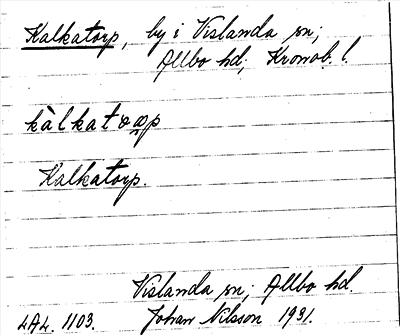 Kalkatorp, by i Vislanda sn;
Allbo hd; Kronob. l.
kàlkatorp
Kalkatorp.
Vislanda sn; Allbo hd.
LAL. 1103. Johan Nilsson 1931.